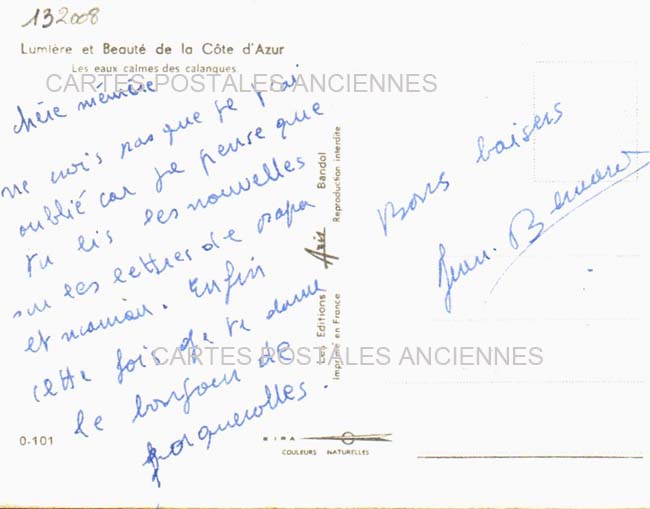 132008
Lumière et Beauté de la Côte d'Azur
Les eaux calmes des calanques
CARTES POSTALES ANCIENNES
chère mémère
ne crois pas que je t'ai
oublié car je pense que
tu lis les nouvelles
sur les lettres de papa
et maman. Enfin
cette fois je te donne
le bonjour de
porquerolles.
Bons baisers
Jean. Bernard
Les Editions Aris Bandol
Imprimé en France Reproduction interdite
CARTES POSTALES ANCIENNES
0-101
KIRA
COULEURS NATURELLES